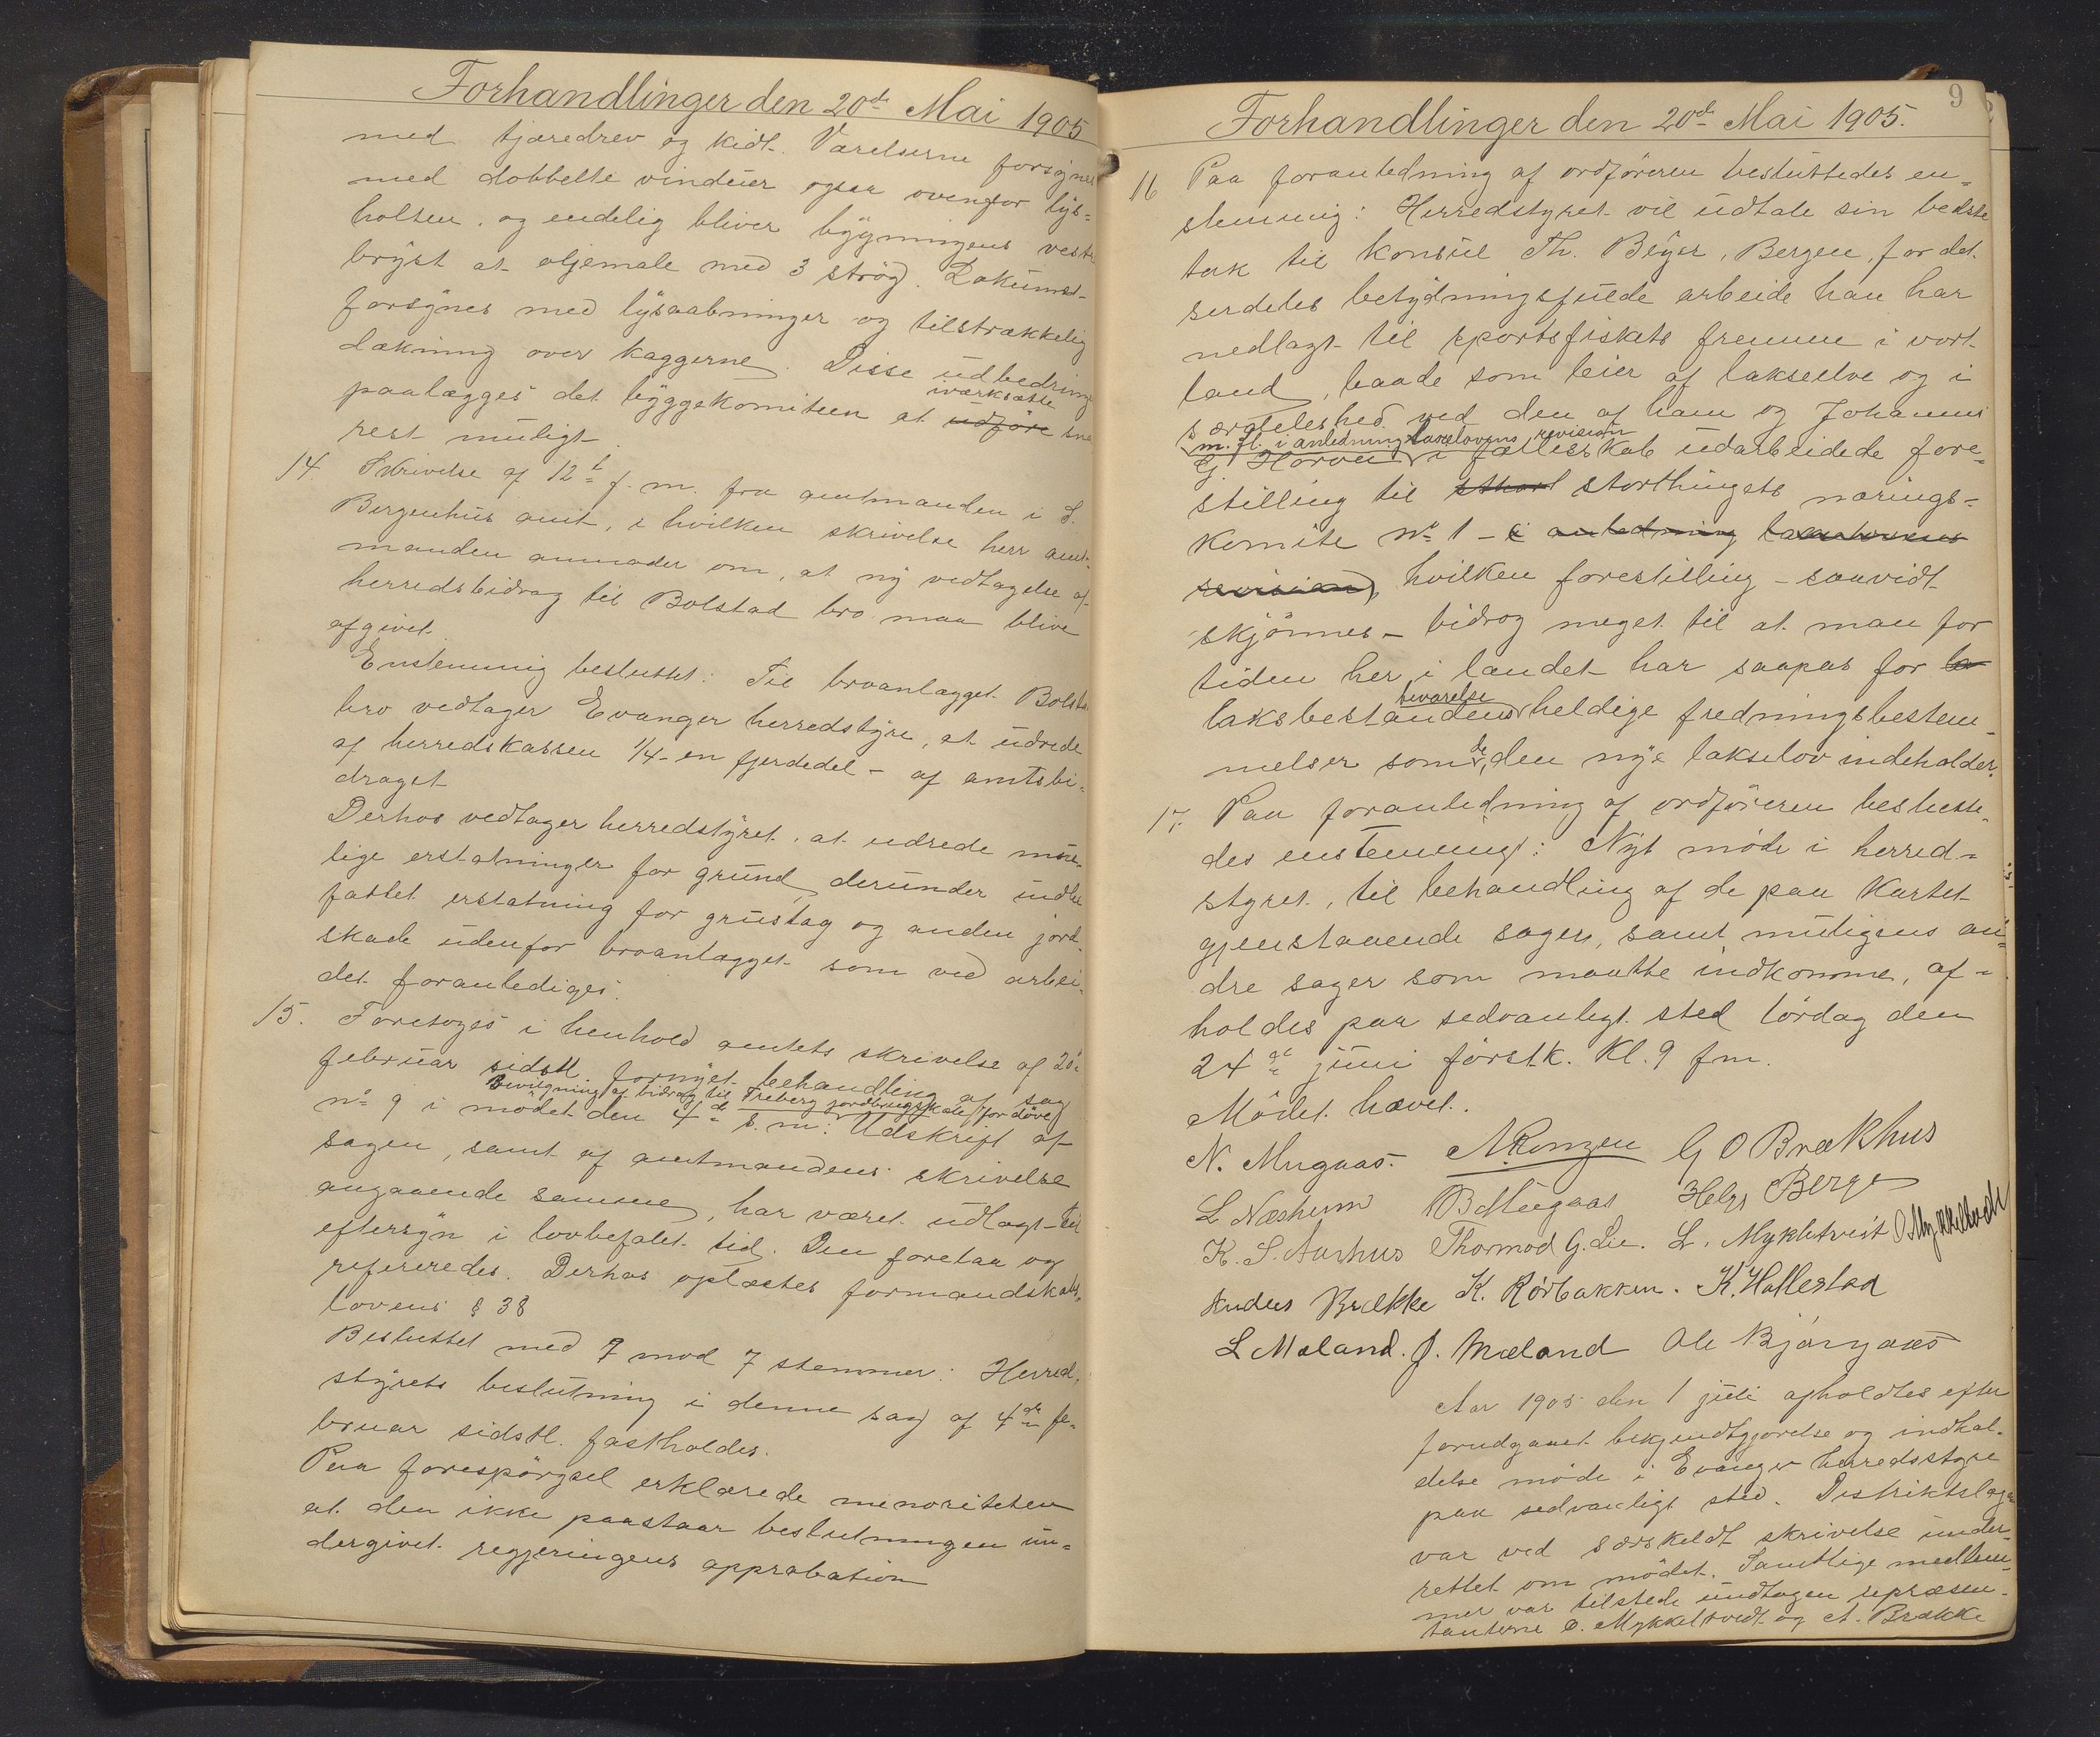 Forhandlinger den 20de Mai 1905
med tjæredrev og kidt. Værelserne forsynes
med dobbelte vinduer ogsaa ovenfor lys=
holten, og endelig bliver bygningens vestre
bryst at oljemale med 3 strøg. Lokummet
forsynes med lysaabninger og tilstrækkelig
dækning over kaggerne. Disse udbedringer
iværksætte
paalægges det byggekomiteen at udføre sna
rest muligt.
14. Skrivelse af 12te f. m. fra amtmanden i S.
Bergenhus amt, i hvilken skrivelse herr amt=
manden anmoder om, at ny vedtagelse af
herredsbidrag til Bolstad bro maa blive
afgivet.
Enstemmig besluttet: Til broanlægget Bolstad
bro vedtager Evanger herredstyre, at udrede
af herredskassen 1/4 - en fjerdedel - af amtsbi=
draget
Derhos vedtager herredstyret, at udrede mue=
lige erstatninger for grund, derunder indbe
fattet erstatning for grustag og anden jord=
skade udenfor broanlægget som ved arbei=
det foranlediges.
15. Foretoges i henhold amtets skrivelse af 20de
februar sidstl. fornyet behandling af sag
Bevilgning af bidrag til Treberg jordbrugsskole for døve
no 9 i mødet den 4de s. m: Udskrift af
sagen, samt af amtmandens skrivelse
angaaende samme, har været udlagt til
eftersyn i lovbefalet tid. Den foretaa og
refereredes. Derhos oplæstes formandskabs=
lovens § 38
Besluttet med 7 mod 7 stemmer: Herred=
styrets beslutning i denne sag af 4de fe=
bruar sidstl. fastholdes.
Paa forespørgsel erklærede minoriteten
at den ikke paastaar beslutningen un=
dergivet regjeringens approbation
9
Forhandlinger den 20de Mai 1905.
16 Paa foranledning af ordføreren besluttedes en=
stemmig: Herredstyret vil udtale sin bedste
tak til konsul Th. Beyer, Bergen, for det
serdeles betydningsfulde arbeide han har
nedlagt til sportsfiskets fremme i vort
land, baade som leier af lakseelve og i
særdeleshed ved den af ham og Johannes
m. fl. i anledning lakselovens revision
G. Horvei i fællesskab udarbeidede fore=
stilling til sthort storthingets nærings=
komite no 1 - i anledning lakselovens
revision, hvilken forestilling - saavidt
skjønnes - bidrog meget til at man for
tiden her i landet har saapas for la
bevarelse
laksbestandens heldige fredningsbestem=
melser som de, den nye lakselov indeholder.
17. Paa foranledning af ordføreren beslutte=
des enstemmig: Nyt møde i herred=
styret, til behandling af de paa kartet
gjenstaaende sager, samt muligens an=
dre sager som maatte indkomme, af=
holdes paa sedvanligt sted lørdag den
24de juni førstk. Kl. 9 fm.
Mødet hævet.
N. Mugaas. A Rongen G O Brækhus
L Næsheim B Mugaas Helge Berge
K. S. Aarhus Thormod G. Lie. L. Mykletveit O Mykkeltvedt
Anders Brække K. Rørbakken. K. Hallestad
L Mæland. J. Mæland Ole Bjørgaas
Aar 1905 den 1 juli afholdtes efter
forudgaaet bekjendtgjørelse og indkal=
delse møde i Evanger herredsstyre
paa sedvanligt sted. Distriktslægen
var ved særskildt skrivelse under=
rettet om mødet. Samtlige medlem=
mer var tilstede undtagen repræsen=
tanterne O. Mykkeltvedt og A. Brække